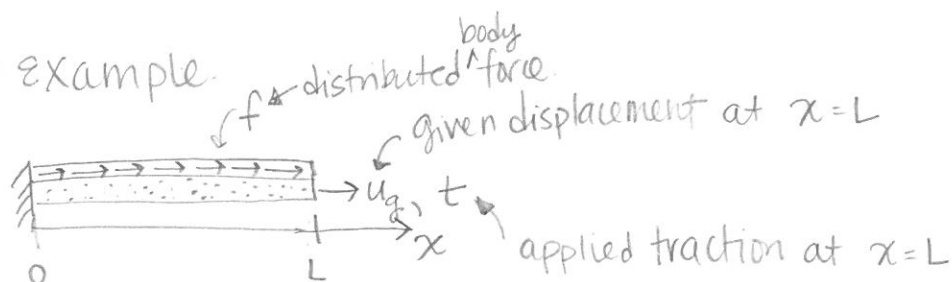 Example.
f ← distributed ^body force
given displacement at x = L
u_g, t
x
applied traction at x = L
0
L